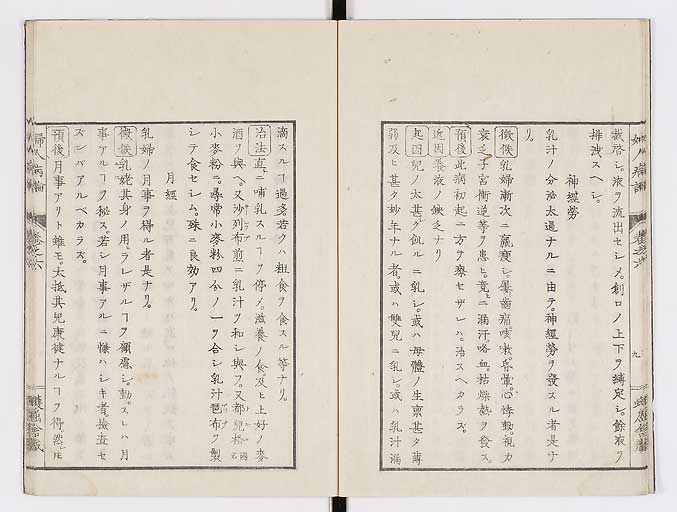 裁啓シ。液ヲ流出セシメ。創口ノ上下ヲ縛定シ。餘液ヲ
排洩スヘシ。
神經勞
乳汁ノ分泌太過ナルニ由テ。神經勞ヲ發スル者是ナ
リ。
徴候 乳婦漸次ニ羸痩シ。屢齒痛。咳嗽。昏暈。心悸動。視力
衰乏。子宮衝逆等ヲ患ヒ。竟ニ漏汗咯血。枯燥熱ヲ發ス。
預後 此病初起ニ方ヲ療セザレハ。治スヘカラズ。
近因 養液ノ缺乏ナリ
起因 兒ノ太甚ク飢ルニ乳シ。或ハ母體ノ生稟甚タ薄
弱及ヒ甚タ妙年ナル者。或ハ雙兒ニ乳シ。或ハ乳汁漏
滴スルコ過多若クハ粗食ヲ食スル等ナリ。
治法 直ニ哺乳スルコヲ停メ。滋養ノ食及ヒ上好ノ麥
酒ヲ與ヘ。又沙列布煎ニ乳汁ヲ和シ與フ。又都兒格國名
小麥粉ニ。尋常小麥粉四分ノ一ヲ合シ乳汁芭布ヲ製
シテ食セシム。殊ニ良効アリ。
月經
乳婦ノ月事ヲ得ル者是ナリ。
徴候 乳姥其身ノ用ヲラレザルコヲ顧慮シ。動スレハ月
事アルコヲ秘ス。若シ月事アルニ慊ハシキ者。檢査セ
ズンバアルベカラズ。
預後 月事アリト雖モ。太抵其兒康健ナルコヲ得。然レ𪜈
婦人病論
卷之六
九